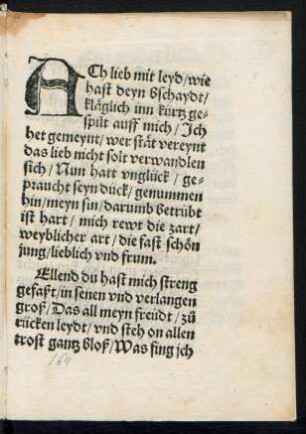 ACh lieb mit leyd/wie
hast deyn bschaydt/
kläglich inn kürtz ge-
spüt auff mich/Ich
het gemeynt/wer stät vereynt
das lieb nicht solt verwandlen
sich/Nun hatt vnglück/ge-
praucht seyn dück/genummen
hin/meyn sin/darumb betrübt
ist hart/mich rewt die zart/
weyblicher art/die fast schön
jung/lieblich vnd frum.
Ellend du hast mich streng
gefaßt/in senen vnd verlangen
groß/Das all meyn freüdt/zů
rücken leydt/vnd steh on allen
trost gantz bloß/Was fing jch
164